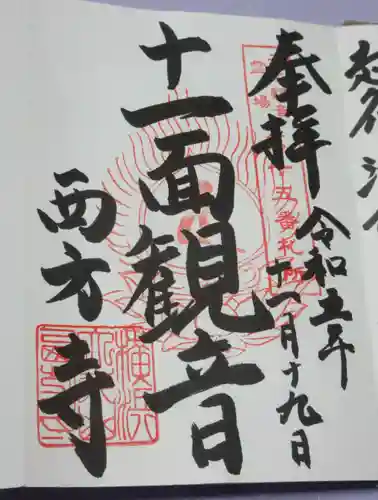 奉拝
令和五年
十一月十九日
十一面観音
西方寺
五番札所